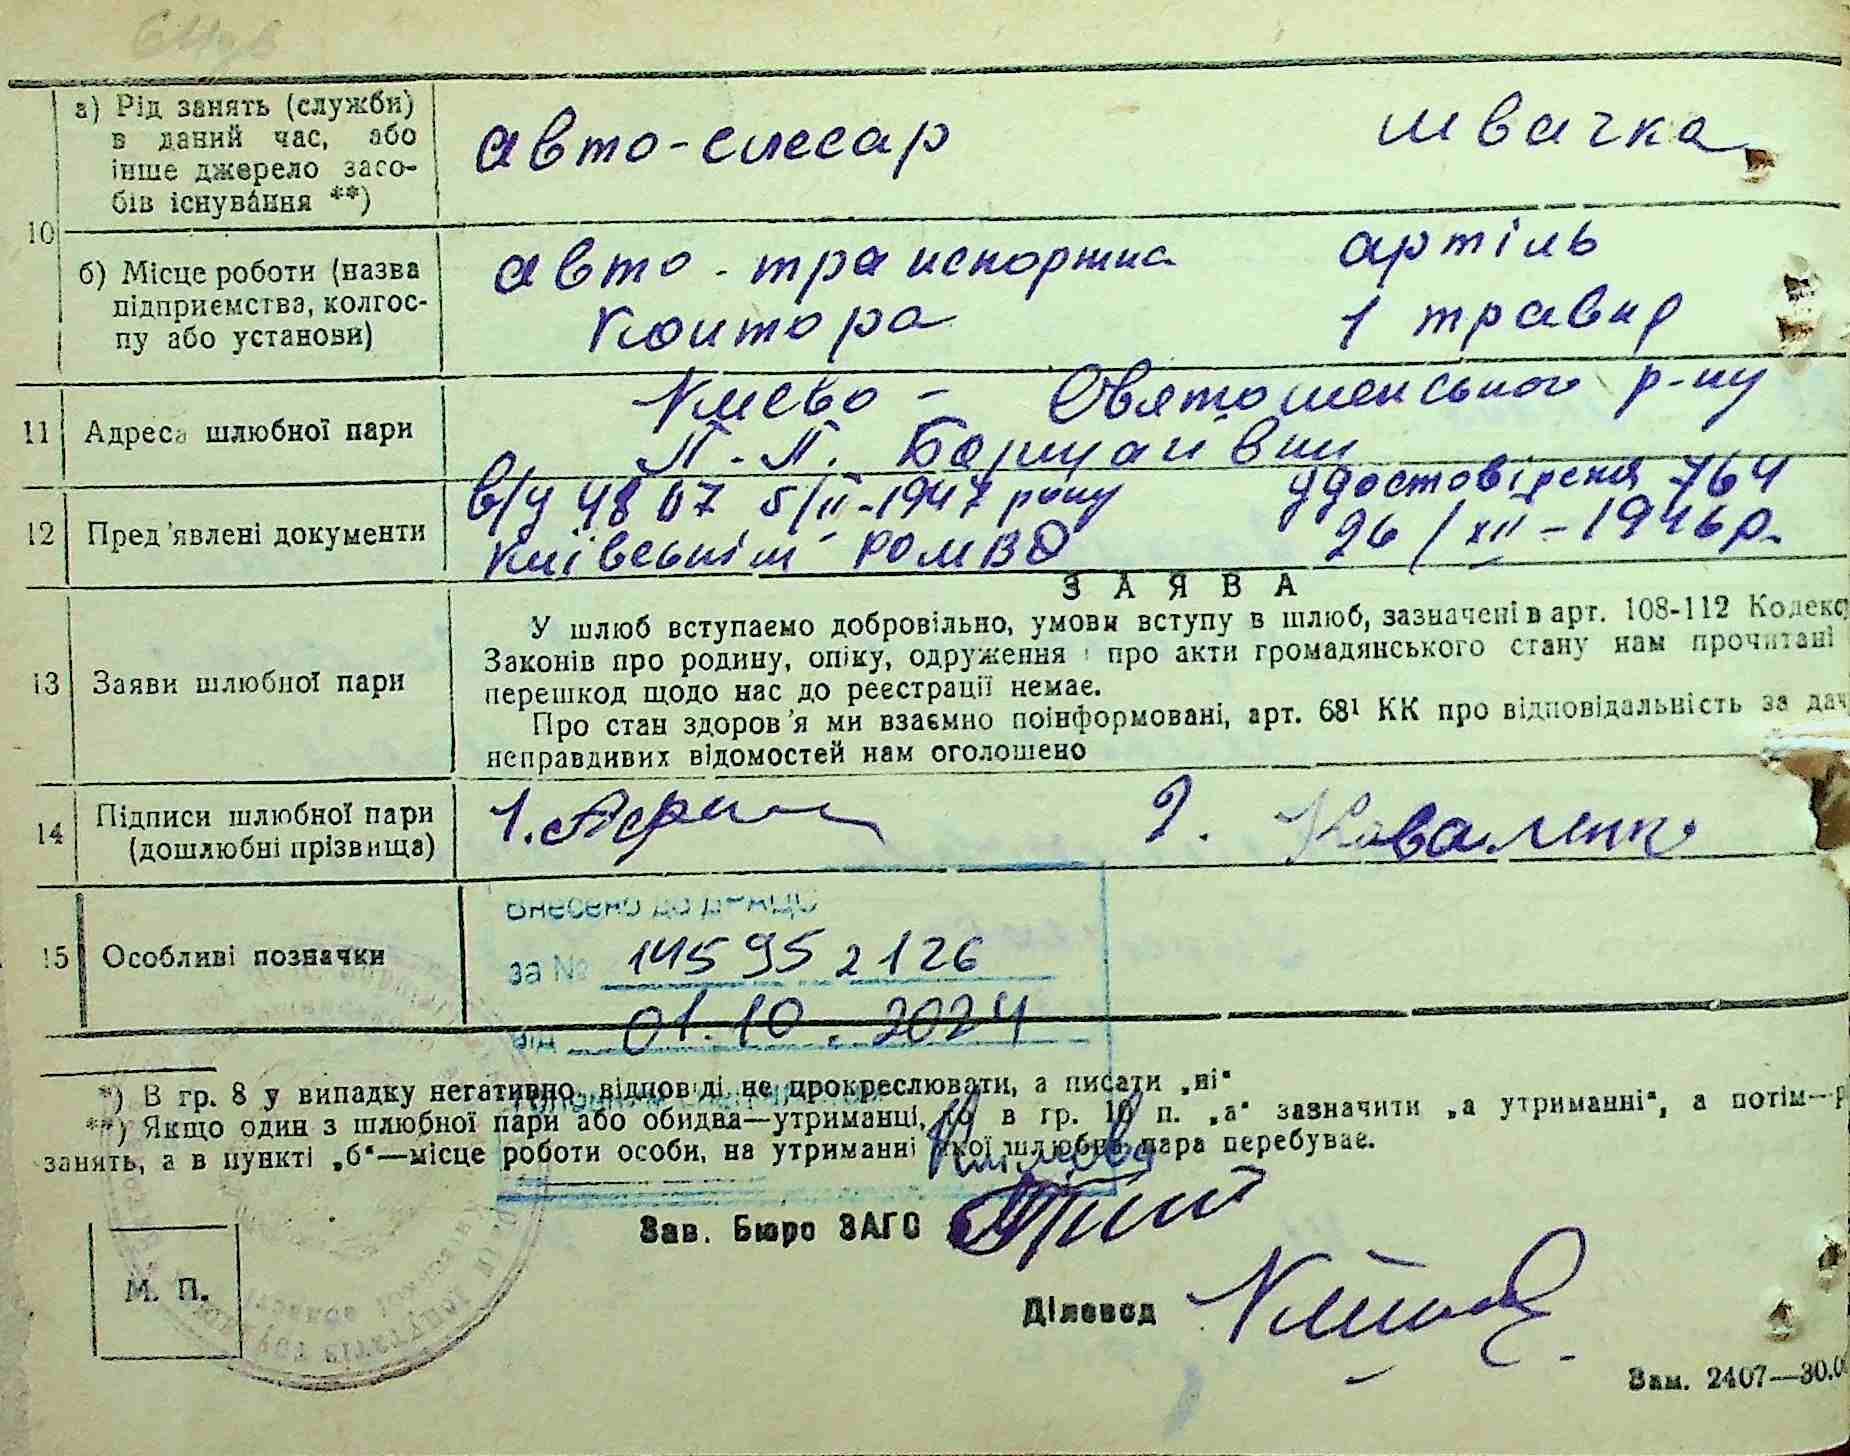 10
а) Рід занять (служби)
в даний час, або
інше джерело засо-
бів існування **)
авто-слесар
швачка
б) Місце роботи (назва
підприємства, колгос-
пу або установи)
авто-транспортна
контора
артіль
1 травня
11 Адреса шлюбної пари
Києво - Святошенського р-ну
П.-П. Борщагівки
12 Пред'явлені документи
в/у 4807 5/II-1947 року
Київським РОМВД
удостовіреня 764
26/XII-1946р.
13 Заяви шлюбної пари
ЗАЯВА
У шлюб вступаємо добровільно, умови вступу в шлюб, зазначені в арт. 108-112 Кодекс
Законів про родину, опіку, одруження і про акти громадянського стану нам прочитані
перешкод щодо нас до реєстрації немає.
Про стан здоров'я ми взаємно поінформовані, арт. 68¹ КК про відповідальність за дач
неправдивих відомостей нам оголошено
14 Підписи шлюбної пари
(дошлюбні прізвища)
1.
2. Коваленко
15 Особливі позначки
Внесено до ДРАЦС
за № 14595 2126
від 01.10.2024
*) В гр. 8 у випадку негативно відповіді не прокреслювати, а писати „ні“
**) Якщо один з шлюбної пари або обидва—утриманці, то в гр. 10 п. „а“ зазначити „а утриманні“, а потім—р
занять, а в пункті „б“—місце роботи особи, на утриманні якої шлюбна пара перебуває.
Зав. Бюро ЗАГС
М. П.
Діловод
Зам. 2407—30.0